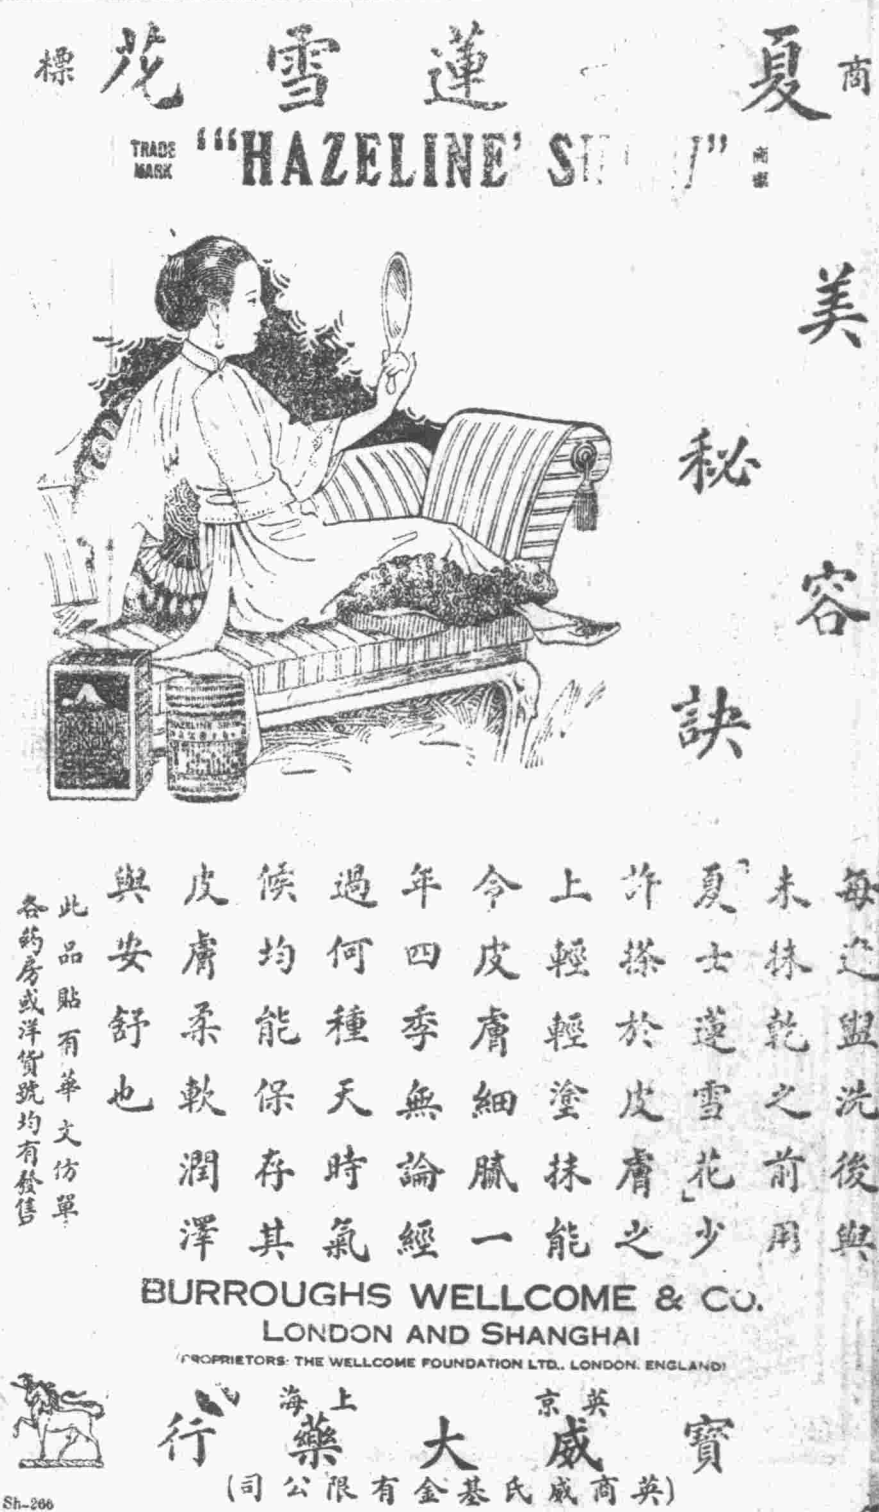 商標
夏蓮雪花
TRADE MARK
"'HAZELINE' S
商標
美容
秘訣
每盥洗後與
未抹乾之前用
「夏士蓮雪花」少
許搽於皮膚之
上輕輕塗抹能
令皮膚細膩一
年四季無論經
過何種天時氣
候均能保存其
皮膚柔軟潤澤
與安舒也
此品貼有華文仿單
各药房或洋貨號均有發售
BURROUGHS WELLCOME & CO.
LONDON AND SHANGHAI
(PROPRIETORS: THE WELLCOME FOUNDATION LTD., LONDON, ENGLAND)
英京 上海
寶威大藥行
(英商威氏基金有限公司)
Sh-266